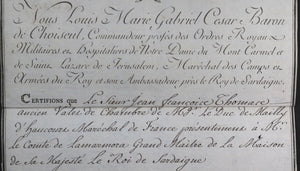 Nous Louis Marie Gabriel Cesar Baron
de Choiseul, Commandeur profès des Ordres Royaux
Militaires et Hospitaliers de Notre Dame du Mont Carmel et
de Saint Lazare de Jerusalem, Maréchal des Camps et
Armées du Roy et son Ambassadeur près le Roy de Sardaigne.
Certifions que Le Sieur Jean françois Thomare
ancien Valet de Chambre de Mgr. Le Duc de Mailly
d'haucourt Maréchal de France presentement à Mr.
le Comte de Lamarmora Grand Maitre de la Maison
de Sa Majesté Le Roi de Sardaigne